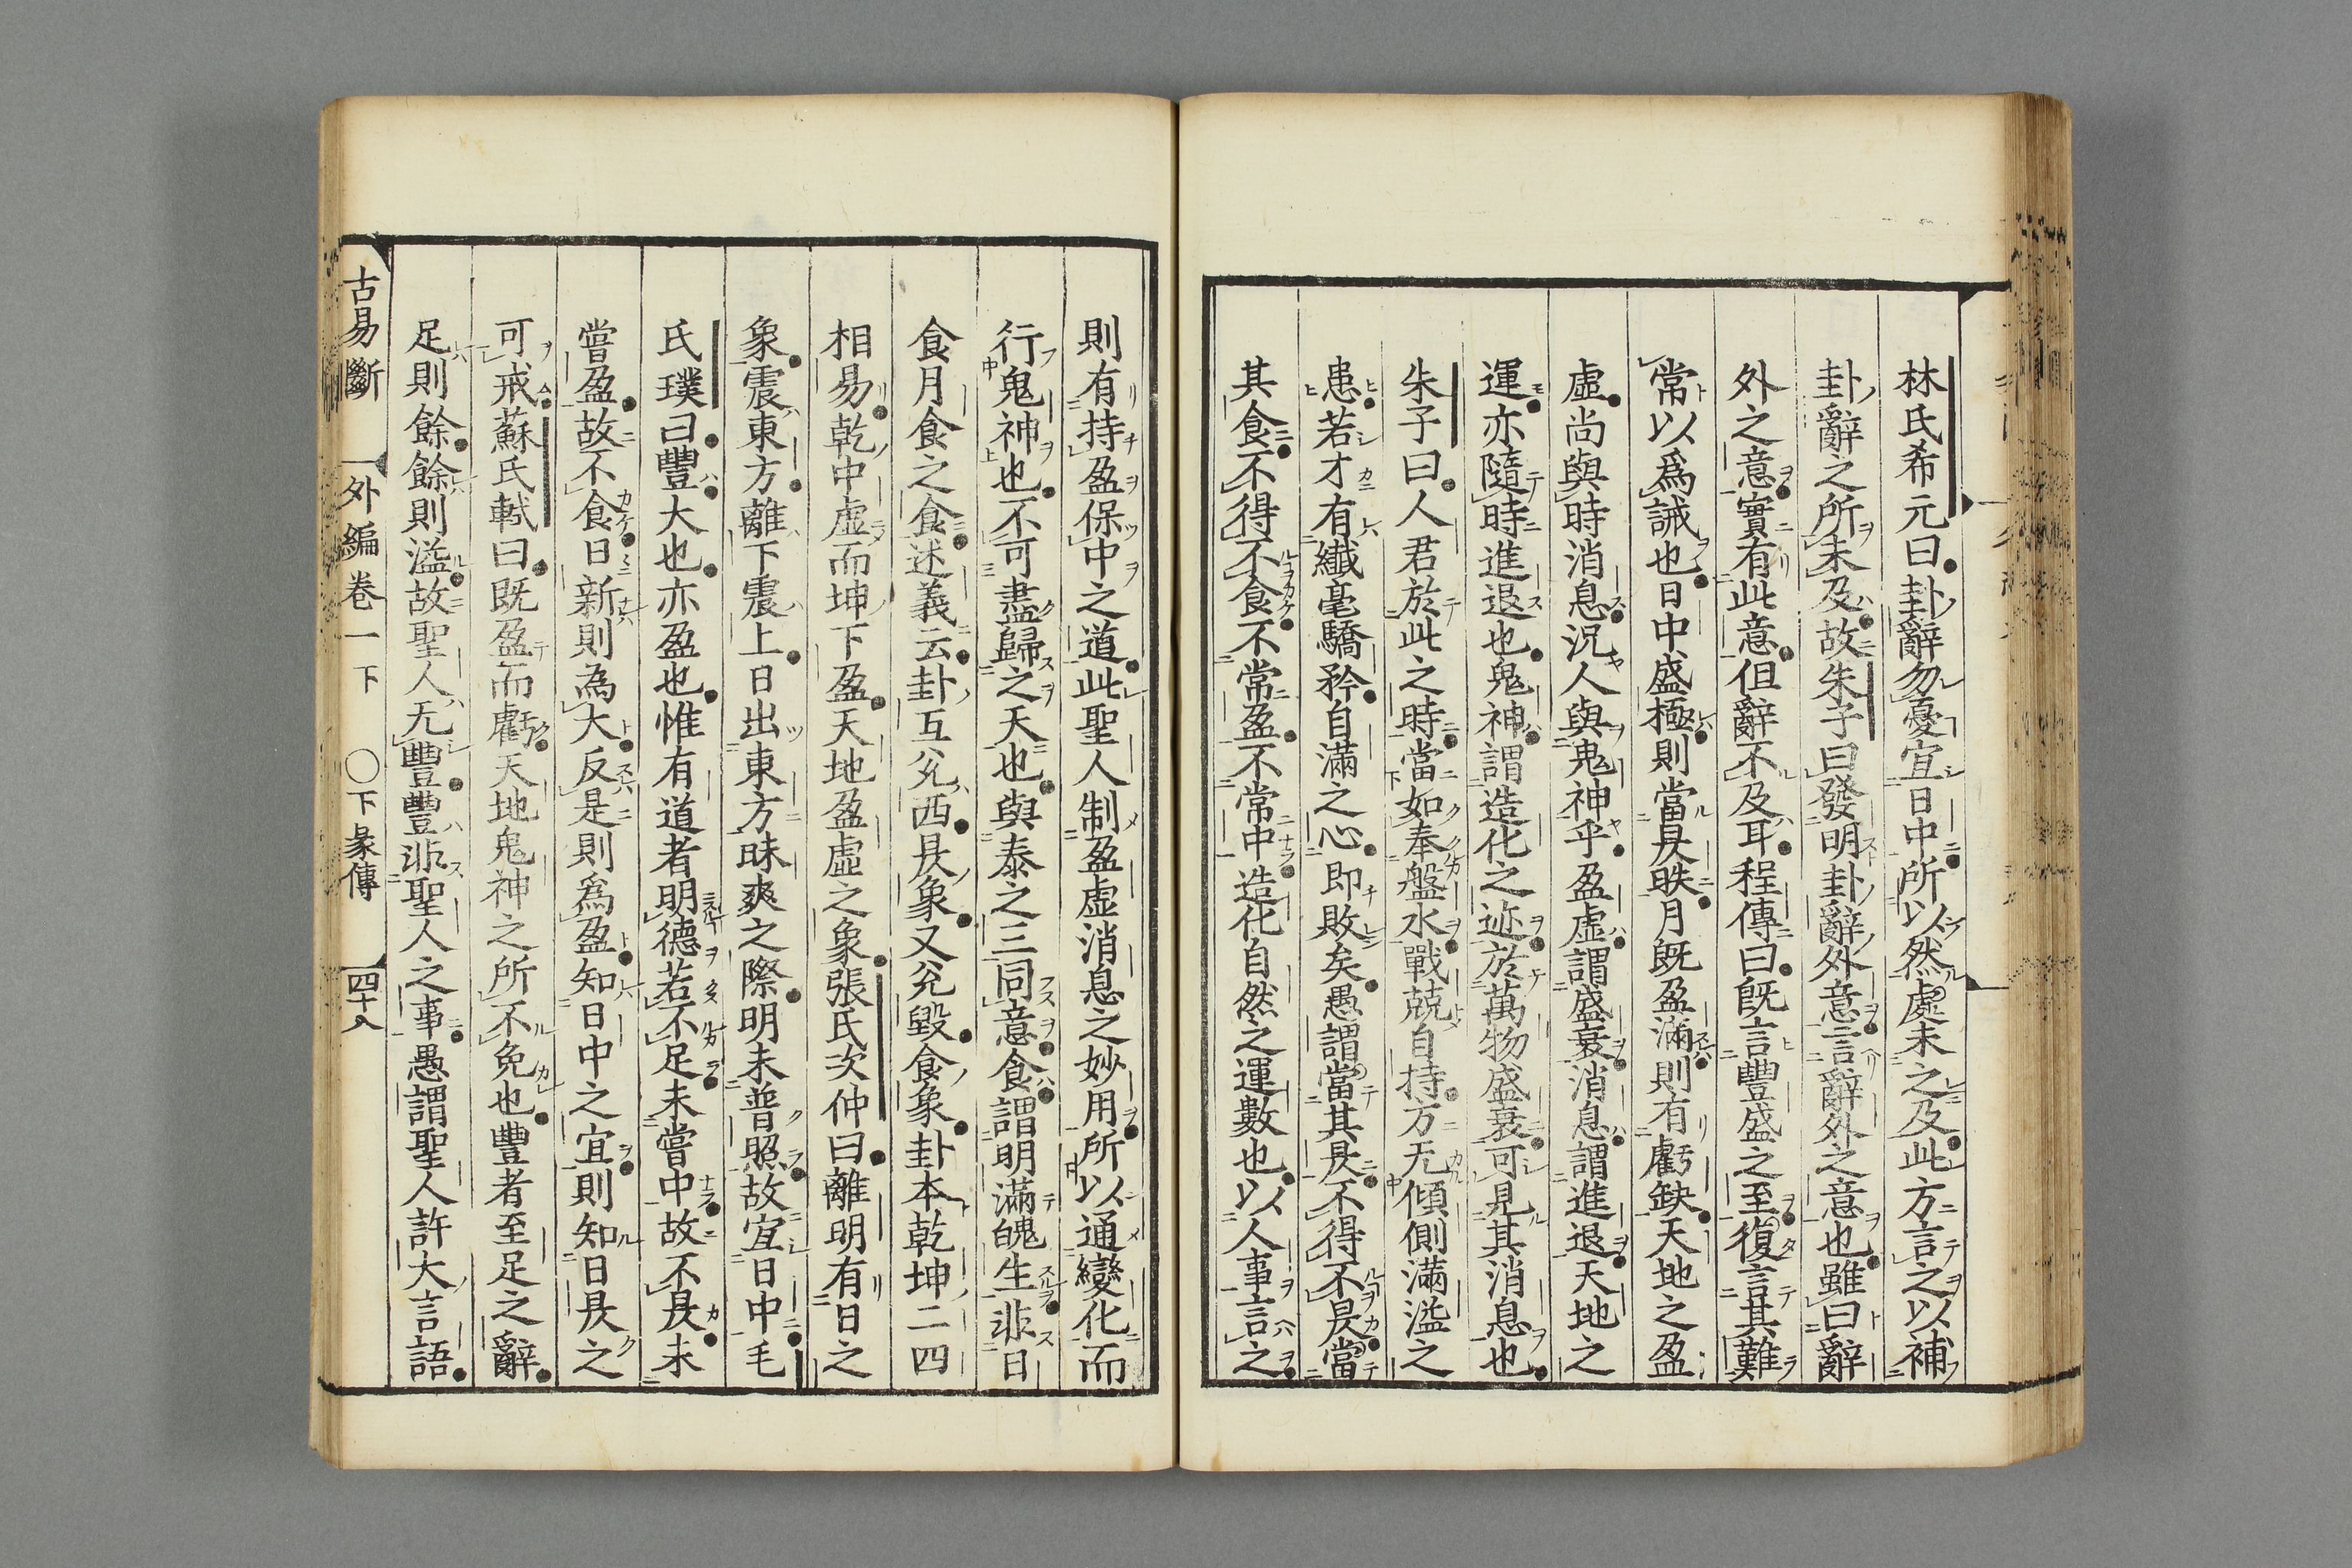 林氏希元曰卦辭勿憂宜日中所以然處未之及此方言之以補
卦辭之所未及故朱子曰發明卦辭外意言辭外之意也雖曰辭
外之意實有此意但辭不及耳程傳曰旣言豐盛之至復言其難
常以爲誡也日中盛極則當昃昳月旣盈滿則有虧缺天地之盈
虛尚與時消息況人與鬼神乎盈虛謂盛衰消息謂進退天地之
運亦隨時進退也鬼神謂造化之迹於萬物盛衰可見其消息也
朱子曰人君於此之時當如奉盤水戰兢自持方无傾側滿溢之
患若才有纖毫驕矜自滿之心即敗矣愚謂當其昃不得不昃當
其食不得不食不常盈不常中造化自然之運數也以人事言之
則有持盈保中之道此聖人制盈虛消息之妙用所以通變化而
行鬼神也不可盡歸之天也與泰之三同意食謂明滿魄生非日
食月食之食述義云卦互兊兊西昃象又兊毀食象卦本乾坤二四
相易乾中虛而坤下盈天地盈虛之象張氏次仲曰離明有日之
象震東方離下震上日出東方昧爽之際明未普照故宜日中毛
氏璞曰豐大也亦盈也惟有道者明德若不足未嘗中故不昃未
嘗盈故不食日新則為大反是則爲盈知日中之宜則知日昃之
可戒蘇氏軾曰既盈而虧天地鬼神之所不免也豐者至足之辭
足則餘餘則溢故聖人无豐豐非聖人之事愚謂聖人許大言語
古易斷 外編卷一 下 〇下彖傳 四十八